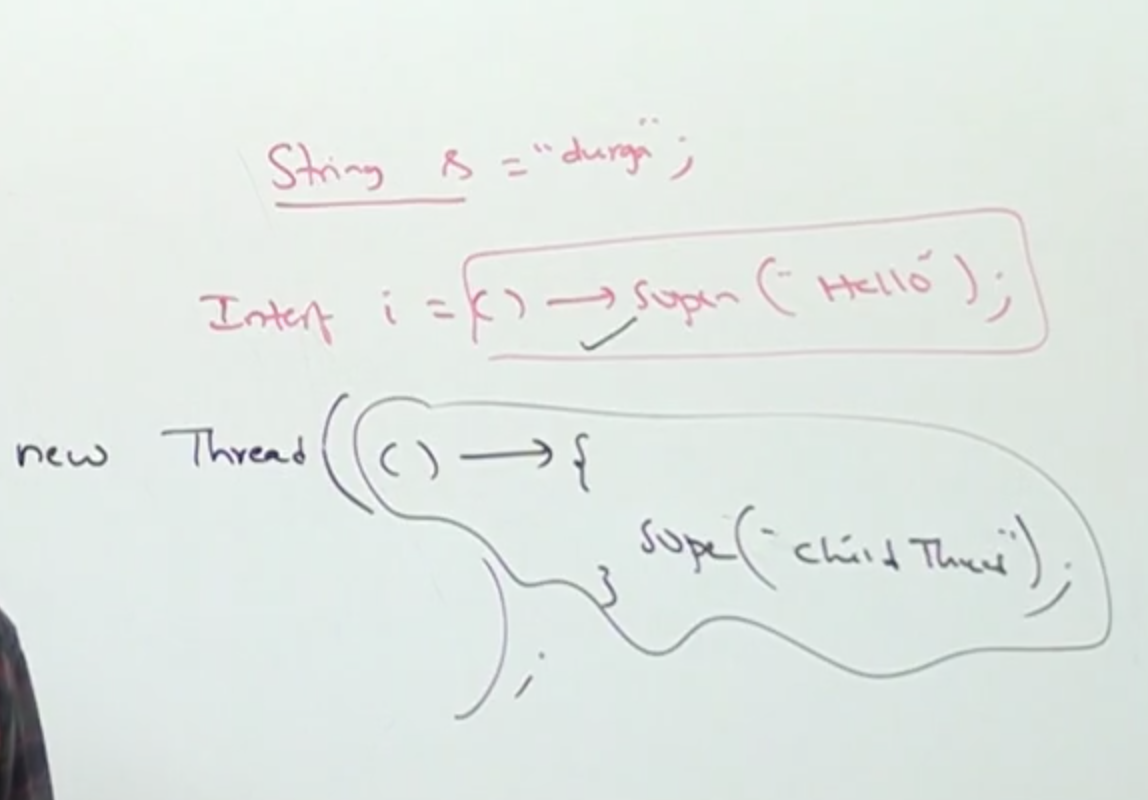 String s = "durga";
Interf i = () → Sopen ("Hello");
new Thread( () → {
Sope("child Thread");
}
);